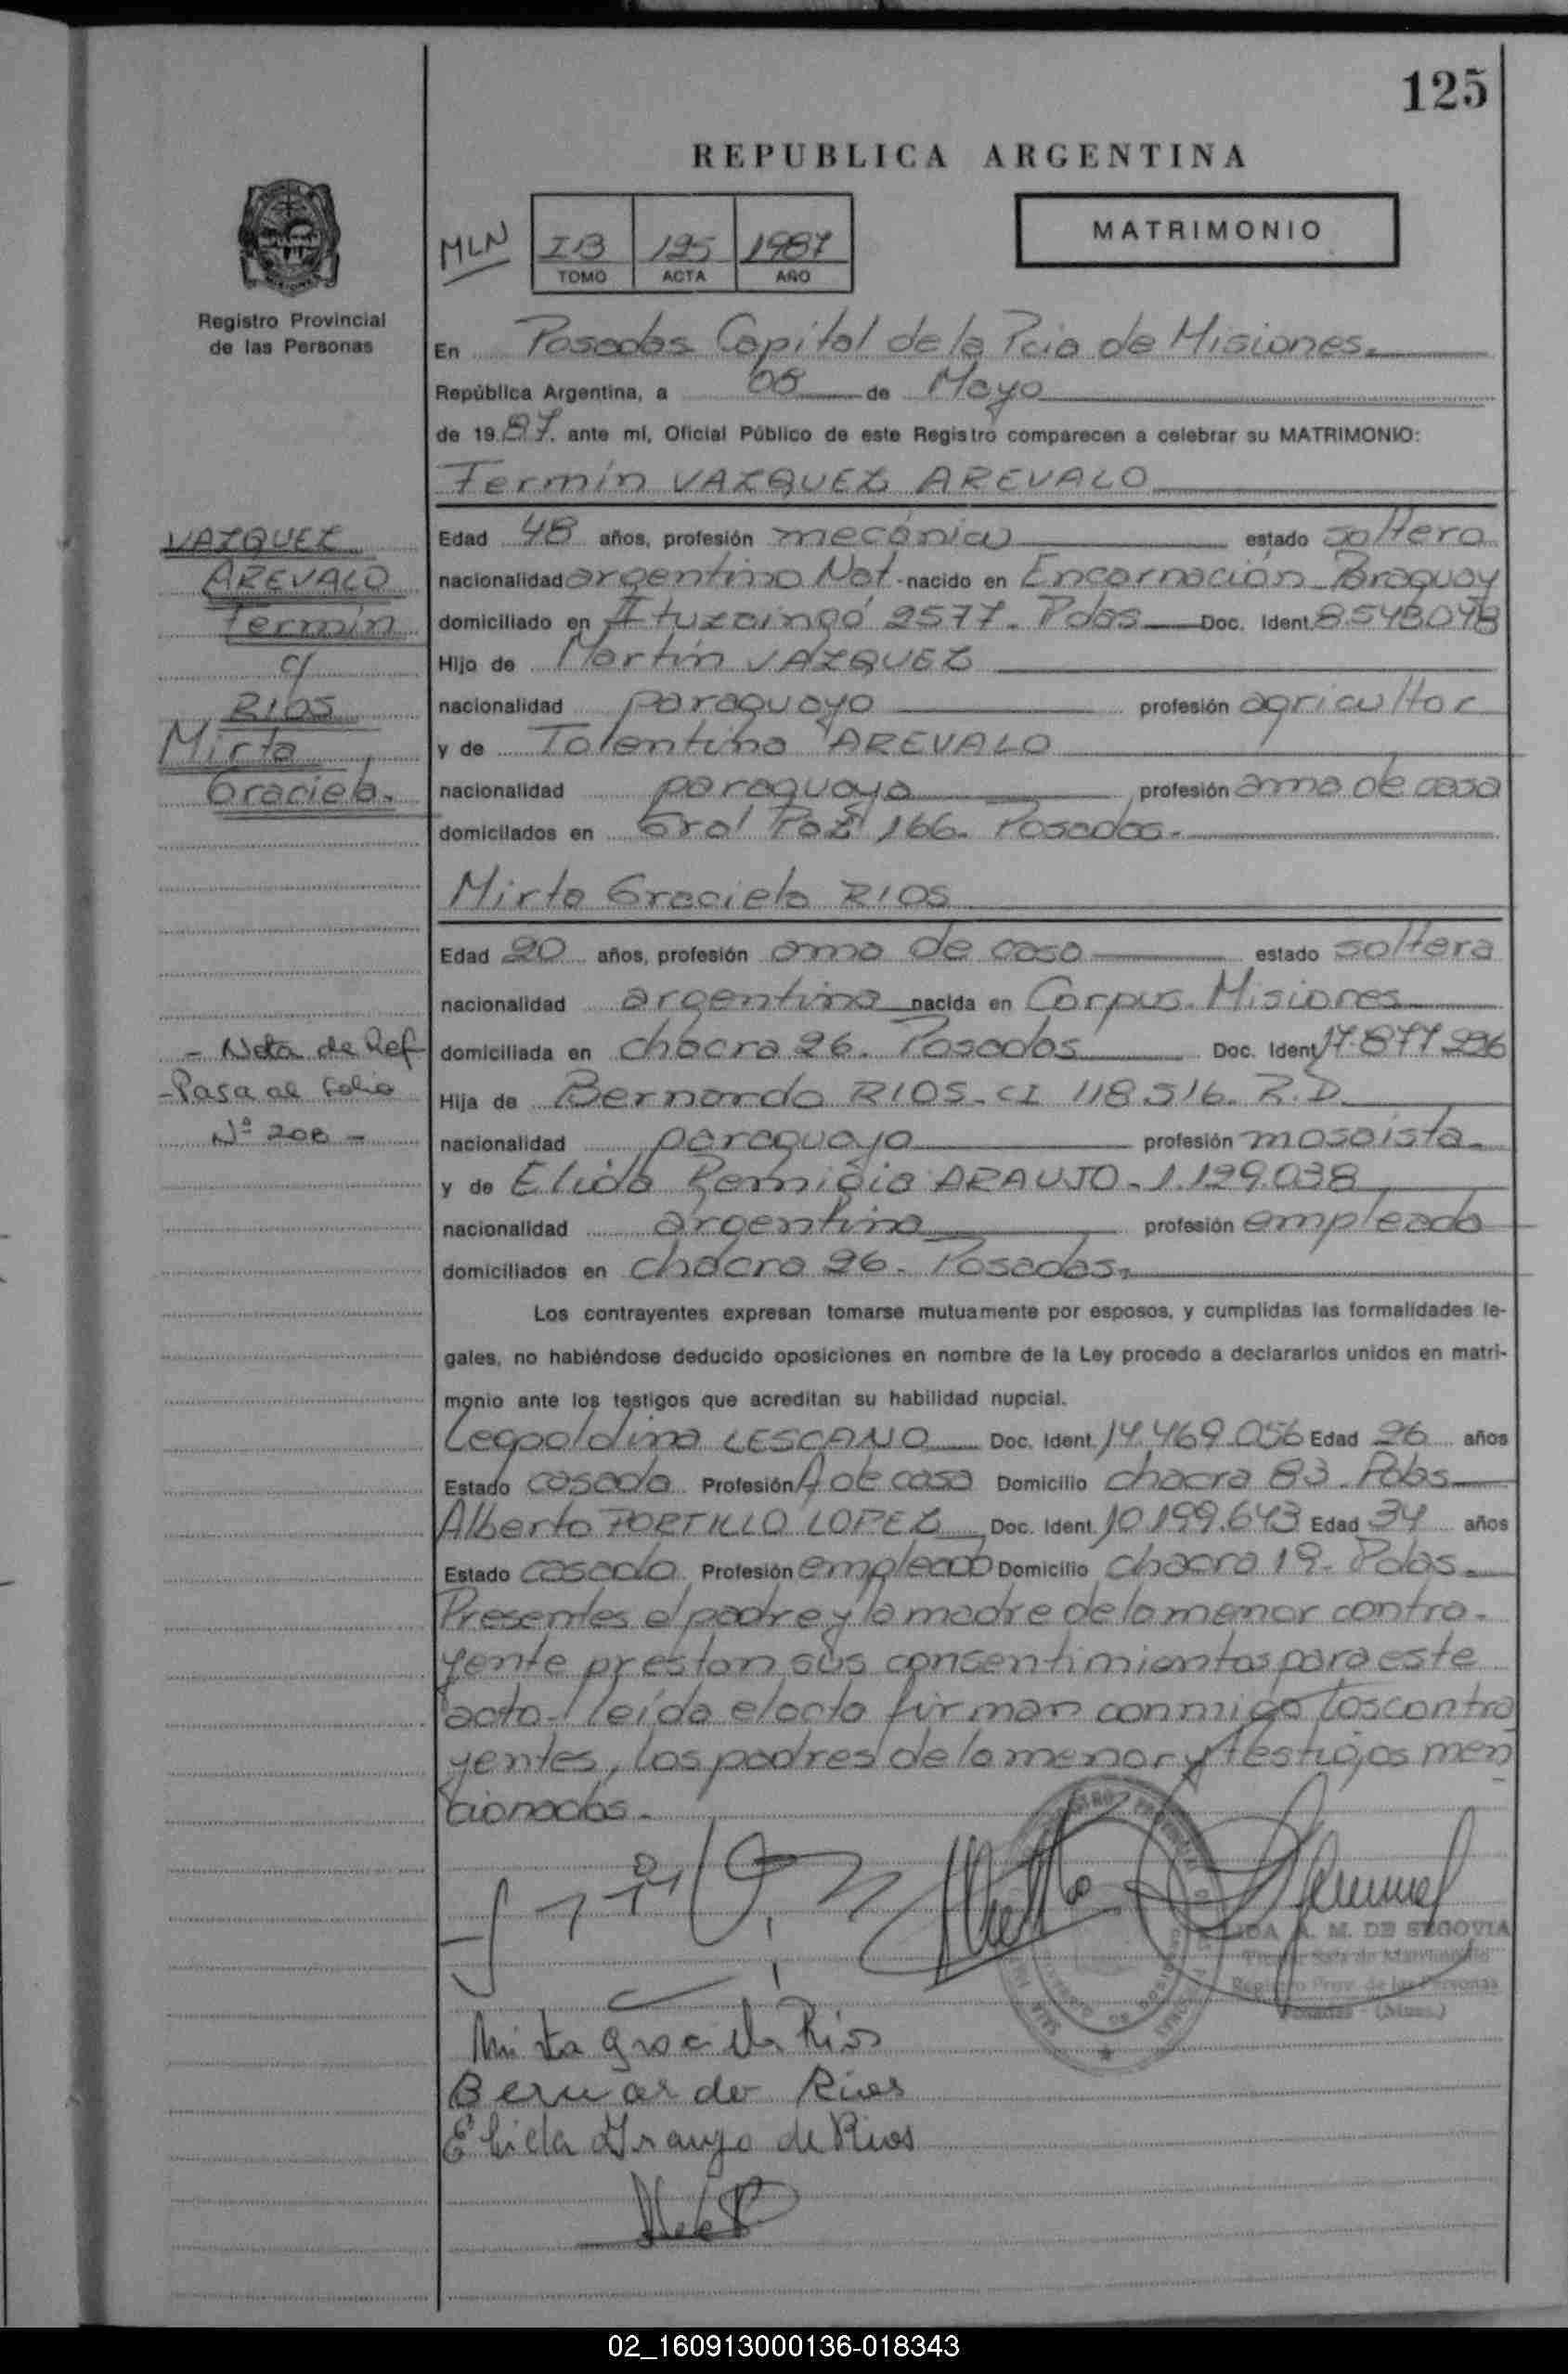 125
REPUBLICA ARGENTINA
MLN
I B 125 1987
TOMO ACTA AÑO
MATRIMONIO
Registro Provincial
de las Personas
En Posadas Capital de la Pcia de Misiones.
República Argentina, a 08 de Mayo
de 1987. ante mí, Oficial Público de este Registro comparecen a celebrar su MATRIMONIO:
Fermín VAZQUEZ AREVALO
VAZQUEZ
AREVALO
Fermín
c/
RIOS
Mirta
Graciela.
Edad 48 años, profesión mecánico estado soltero
nacionalidad argentino Nat. nacido en Encarnación Paraguay
domiciliado en Ituzaingó 2577. Pdas Doc. Ident. 8.548.048
Hijo de Martín VAZQUEZ
nacionalidad paraguayo profesión agricultor
y de Tolentina AREVALO
nacionalidad paraguaya profesión ama de casa
domiciliados en Gral Paz 166. Posadas.
Mirta Graciela RIOS
Edad 20 años, profesión ama de casa estado soltera
nacionalidad argentina nacida en Corpus. Misiones
domiciliada en chacra 26. Posadas Doc. Ident. 17.877.996
Hija de Bernardo RIOS. CI 118.516. R.D.
nacionalidad paraguayo profesión mosaista.
y de Elida Remigia ARAUJO. 1.129.038
nacionalidad argentina profesión empleada
domiciliados en chacra 26. Posadas.
- Nota de Ref
- Pasa al folio
Nº 208 -
Los contrayentes expresan tomarse mutuamente por esposos, y cumplidas las formalidades le-
gales, no habiéndose deducido oposiciones en nombre de la Ley procedo a declararlos unidos en matri-
monio ante los testigos que acreditan su habilidad nupcial.
Leopoldina LESCANO Doc. Ident. 14.469.056 Edad 26 años
Estado casada Profesión A de casa Domicilio chacra 83. Pdas
Alberto PORTILLO LOPEZ Doc. Ident. 10.199.643 Edad 34 años
Estado casado Profesión empleado Domicilio chacra 19. Pdas.
Presentes el padre y la madre de la menor contra-
yente prestan sus consentimientos para este
acto. leída el acta firman conmigo los contra
yentes, los padres de la menor y testigos men
cionados.
IDA A. M. DE SEGOVIA
Registro Prov. de las Personas
Posadas (Mnes.)
Mirta graciela Rios
Bernardo Rios
Elida Araujo de Rios
02_160913000136-018343